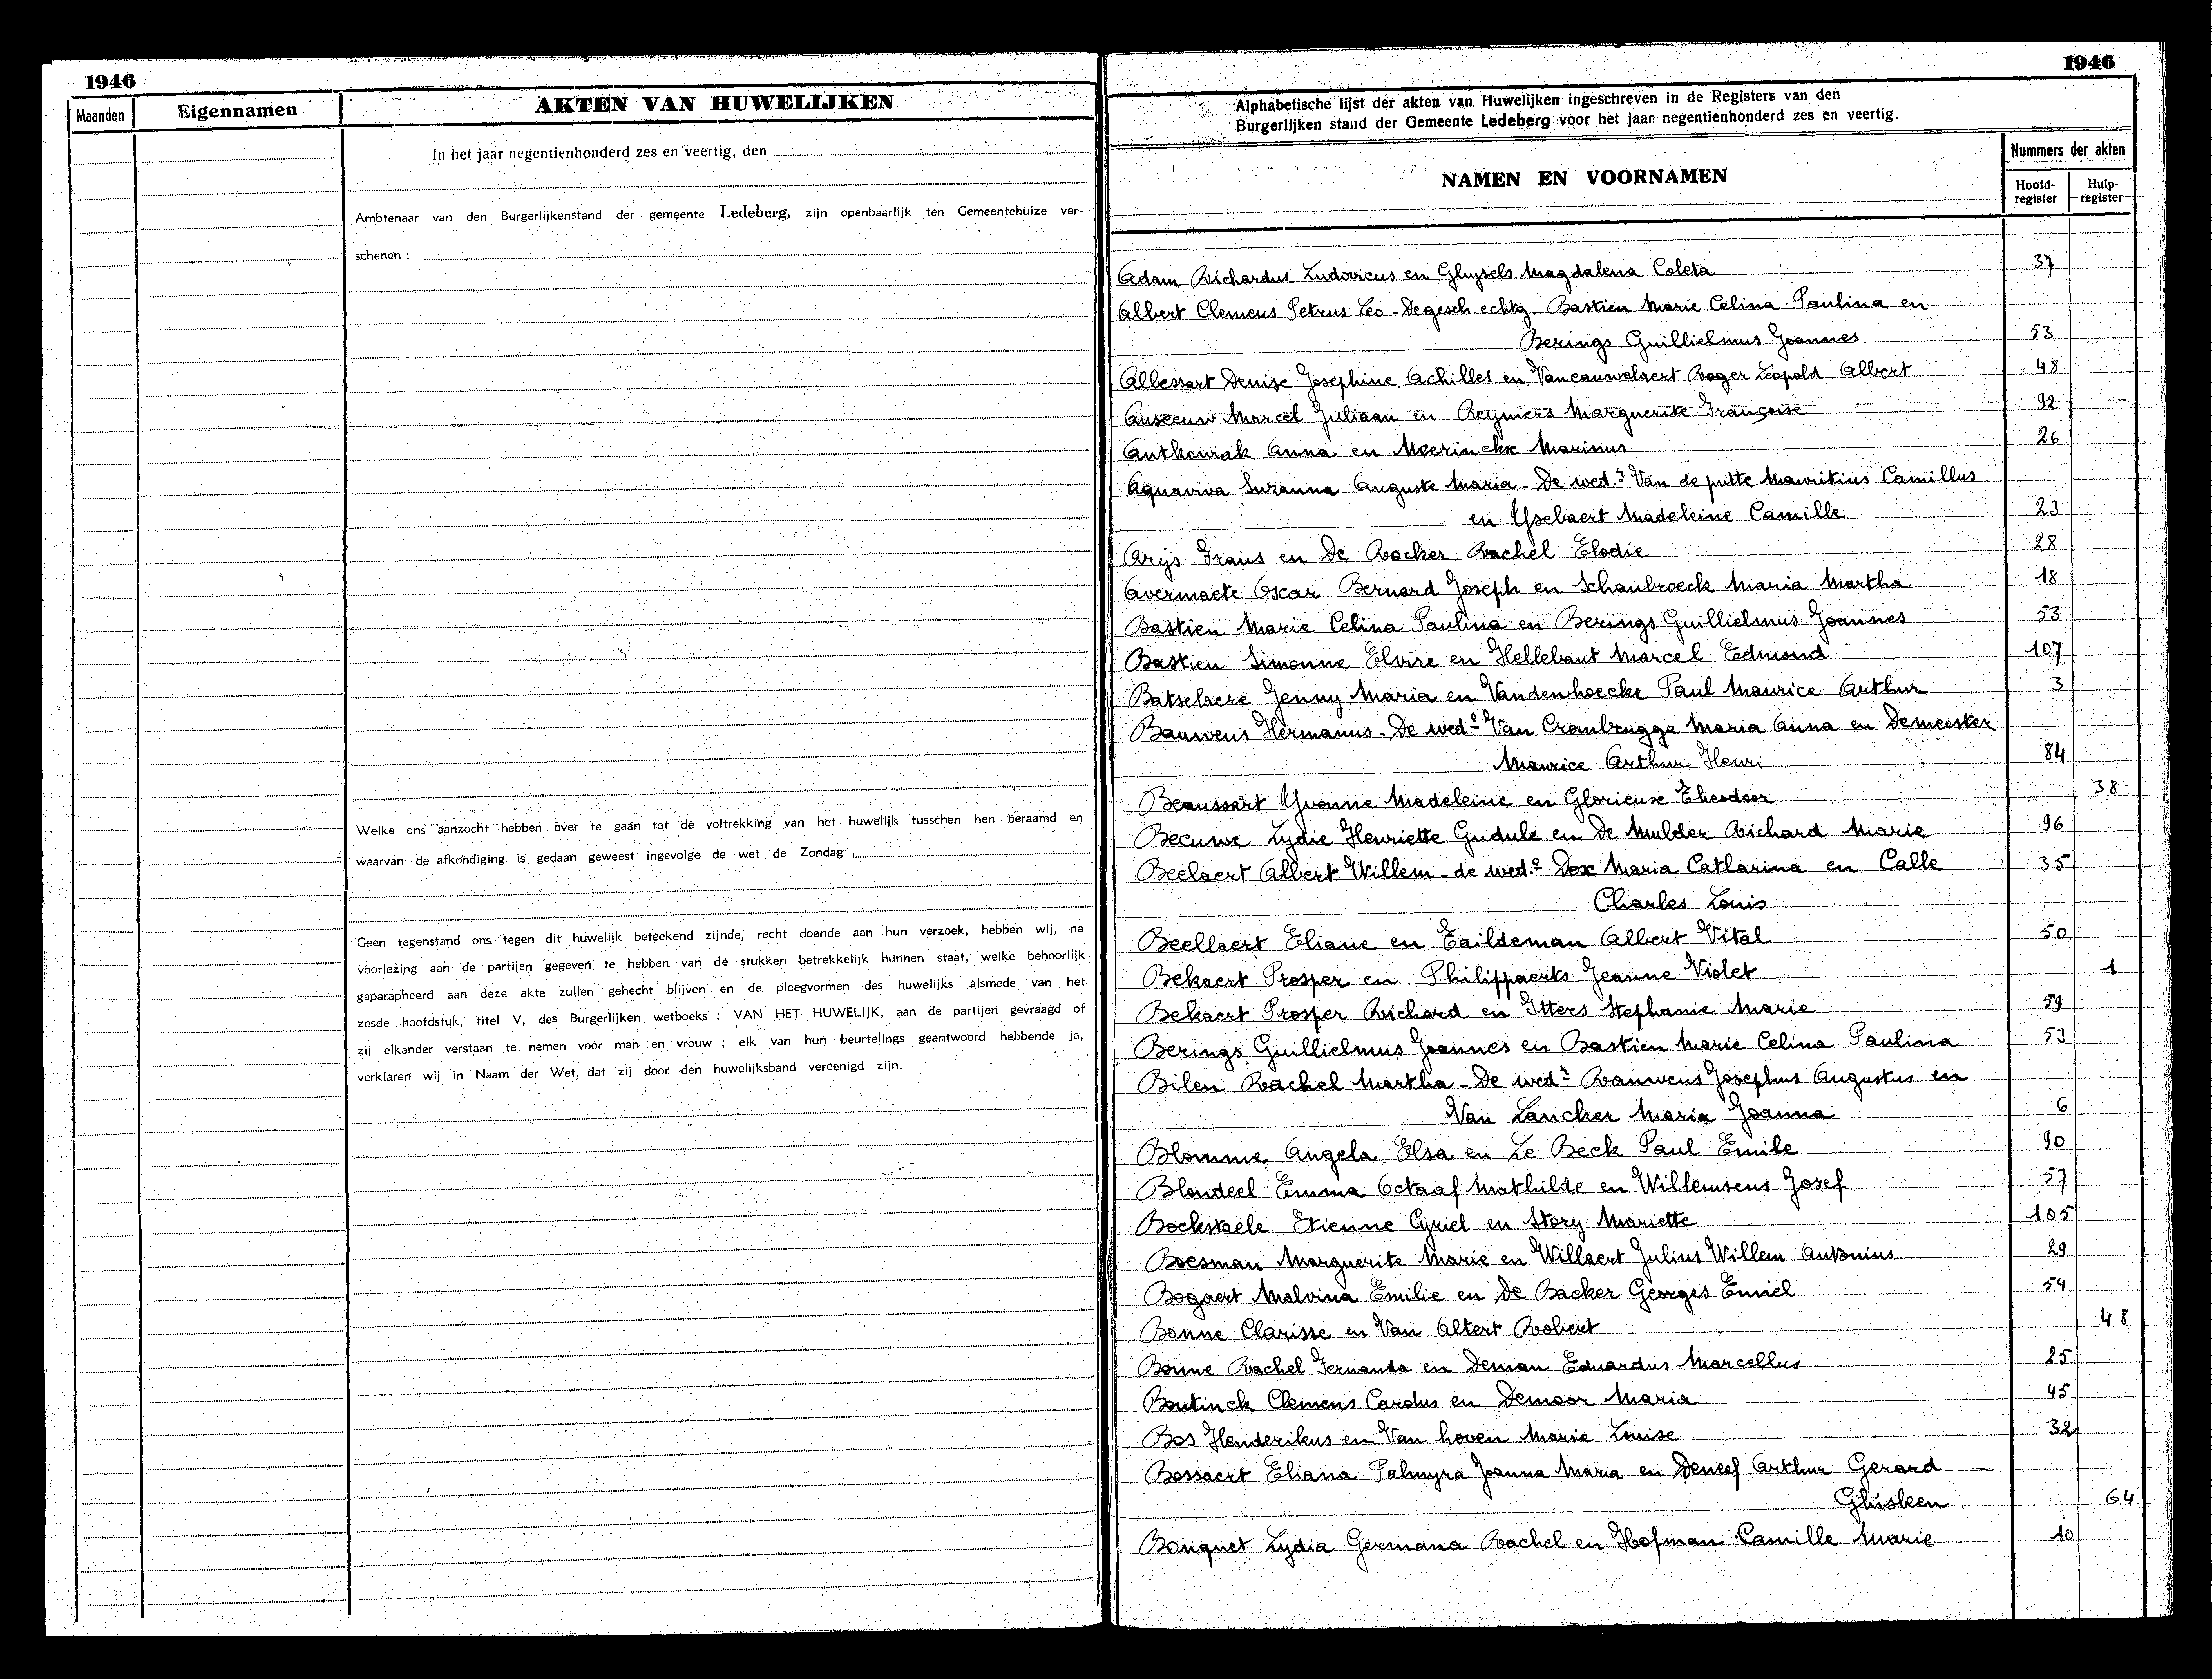 1946
Maanden
Eigennamen
AKTEN VAN HUWELIJKEN
In het jaar negentienhonderd zes en veertig, den
Ambtenaar van den Burgerlijkenstand der gemeente Ledeberg, zijn openbaarlijk ten Gemeentehuize ver-
schenen :
Welke ons aanzocht hebben over te gaan tot de voltrekking van het huwelijk tusschen hen beraamd en
waarvan de afkondiging is gedaan geweest ingevolge de wet de Zondag
Geen tegenstand ons tegen dit huwelijk beteekend zijnde, recht doende aan hun verzoek, hebben wij, na
voorlezing aan de partijen gegeven te hebben van de stukken betrekkelijk hunnen staat, welke behoorlijk
geparapheerd aan deze akte zullen gehecht blijven en de pleegvormen des huwelijks alsmede van het
zesde hoofdstuk, titel V, des Burgerlijken wetboeks : VAN HET HUWELIJK, aan de partijen gevraagd of
zij elkander verstaan te nemen voor man en vrouw ; elk van hun beurtelings geantwoord hebbende ja,
verklaren wij in Naam der Wet, dat zij door den huwelijksband vereenigd zijn.
1946
Alphabetische lijst der akten van Huwelijken ingeschreven in de Registers van den
Burgerlijken stand der Gemeente Ledeberg voor het jaar negentienhonderd zes en veertig.
NAMEN EN VOORNAMEN
Nummers der akten
Hoofd-register
Hulp-register
Adam Richardus Ludovicus en Ghysels Magdalena Coleta 37
Albert Clemens Petrus Leo - De gesch. echtg. Bastien Marie Celina Paulina en
Berings Guillielmus Joannes 53
Albessart Denise Josephine Achilles en Vancauwelaert Roger Leopold Albert 48
Anseeuw Marcel Juliaan en Reyniers Marguerite Françoise 92
Antkowiak Anna en Meerinckx Marinus 26
Aquaviva Suzanna Auguste Maria - De wed.r Van de putte Mauritius Camillus
en Ysebaert Madeleine Camille 23
Arijs Frans en De Backer Rachel Elodie 28
Avermaete Oscar Bernard Joseph en Schaubroeck Maria Martha 18
Bastien Marie Celina Paulina en Berings Guillielmus Joannes 53
Bastien Simonne Elvire en Hellebaut Marcel Edmond 107
Batselaere Jenny Maria en Vandenhoecke Paul Maurice Arthur 3
Bauwens Hermanus - De wed.e Van Cranbrugge Maria Anna en Demeester
Maurice Arthur Henri 84
Beaussart Yvonne Madeleine en Glorieuse Theodoor 38
Becuwe Lydie Henriette Gudule en De Mulder Richard Marie 96
Beelaert Albert Willem - de wed.e Dox Maria Catharina en Calle 35
Charles Louis
Beellaert Eliane en Taildeman Albert Vital 50
Bekaert Prosper en Philippaerts Jeanne Violet 1
Bekaert Prosper Richard en Itters Stephanie Marie 59
Berings Guillielmus Joannes en Bastien Marie Celina Paulina 53
Bilen Rachel Martha - De wed.r Bauwens Josephus Augustus en
Van Lancker Maria Joanna 6
Blomme Angela Elsa en Le Beck Paul Emile 90
Blondeel Emma Octaaf Mathilde en Willemsens Josef 57
Bockstaele Etienne Cyriel en Story Mariette 105
Boesman Marguerite Marie en Willaert Julius Willem Antonius 29
Bogaert Malvina Emilie en De Backer Georges Emiel 54
Bonne Clarisse en Van Altert Robert 48
Bonne Rachel Fernanda en Deman Eduardus Marcellus 25
Bontinck Clemens Carolus en Demoor Maria 45
Bos Henderikus en Van hoven Marie Louise 32
Bossaert Eliana Palmyra Joanna Maria en Deneef Arthur Gerard
Ghisleen 64
Bouquet Lydia Germana Rachel en Hofman Camille Marie 10